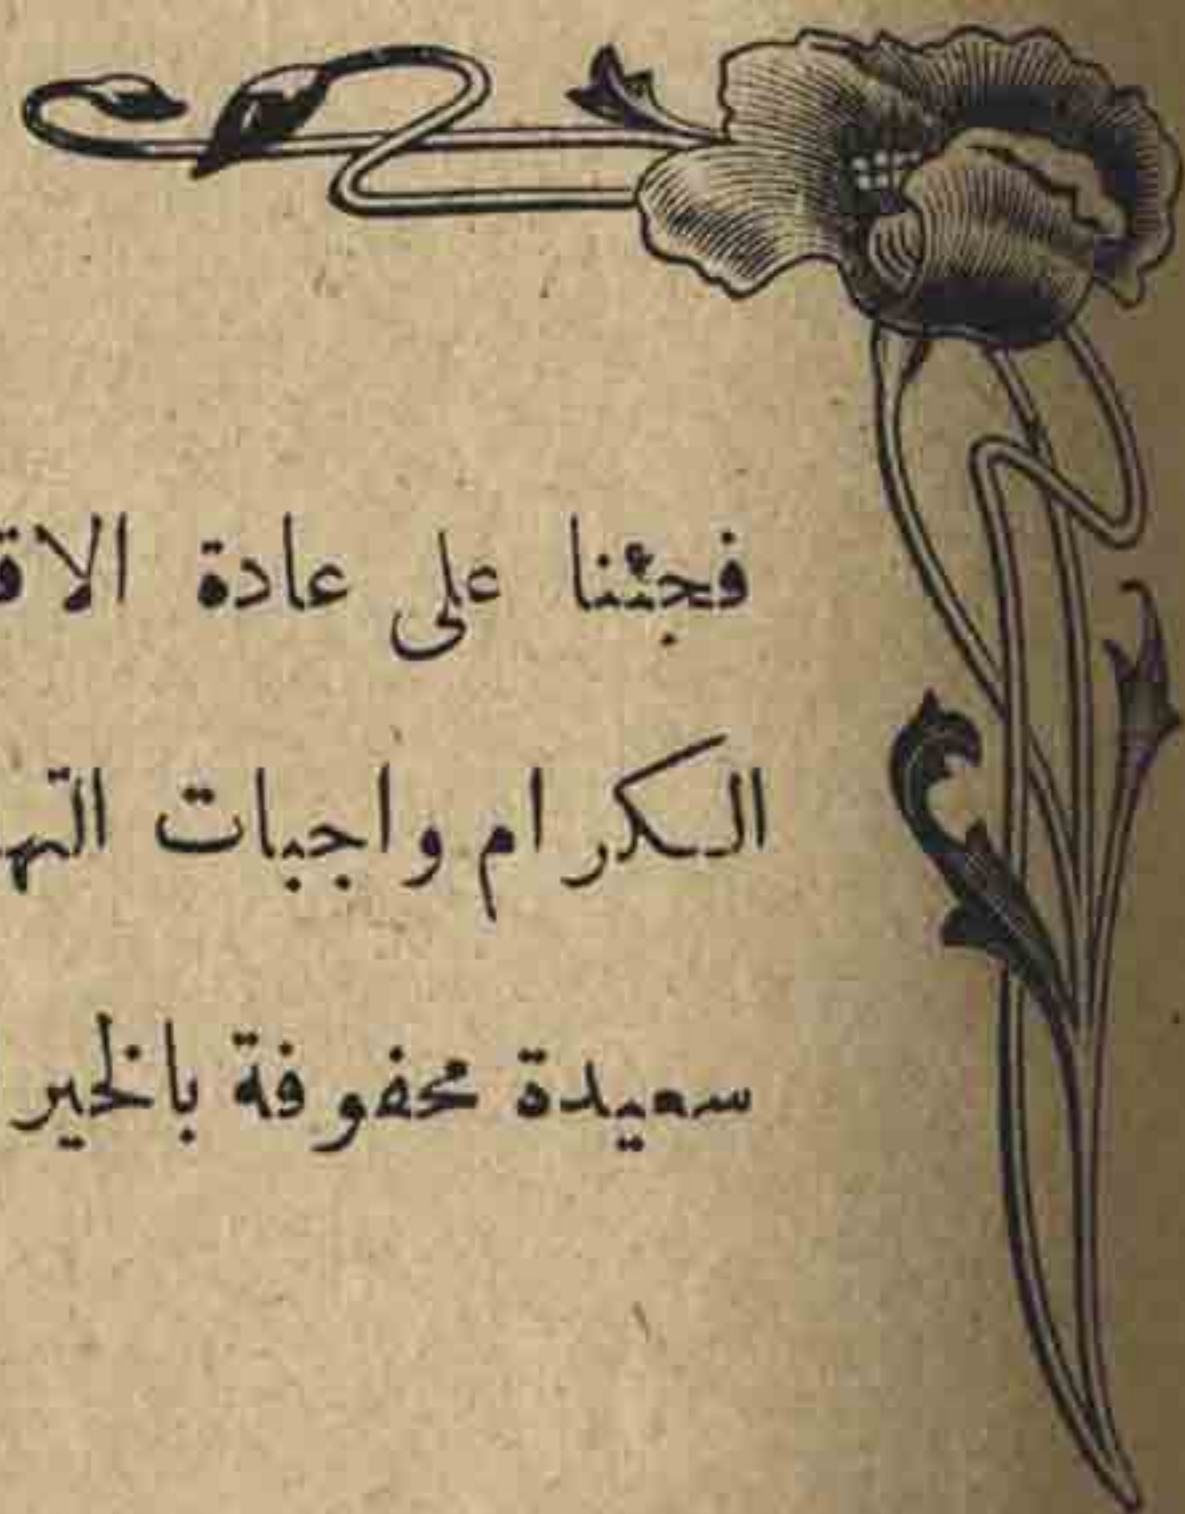 فجئنا على عادة
الكرام واجبات
سعيدة محفوفة بالخير